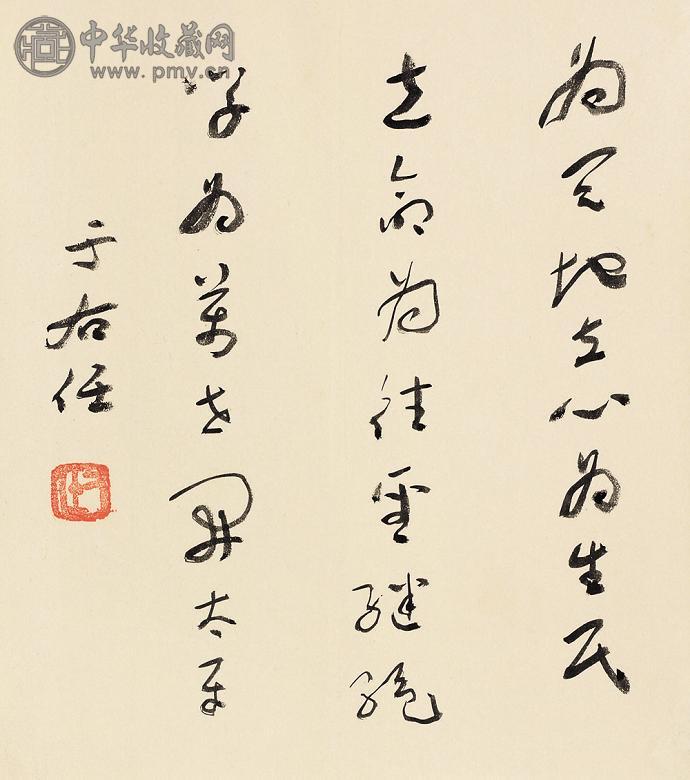 中华收藏网
www.pmv.cn
为天地立心为生民
立命为往圣继绝
学为万世开太平
于右任